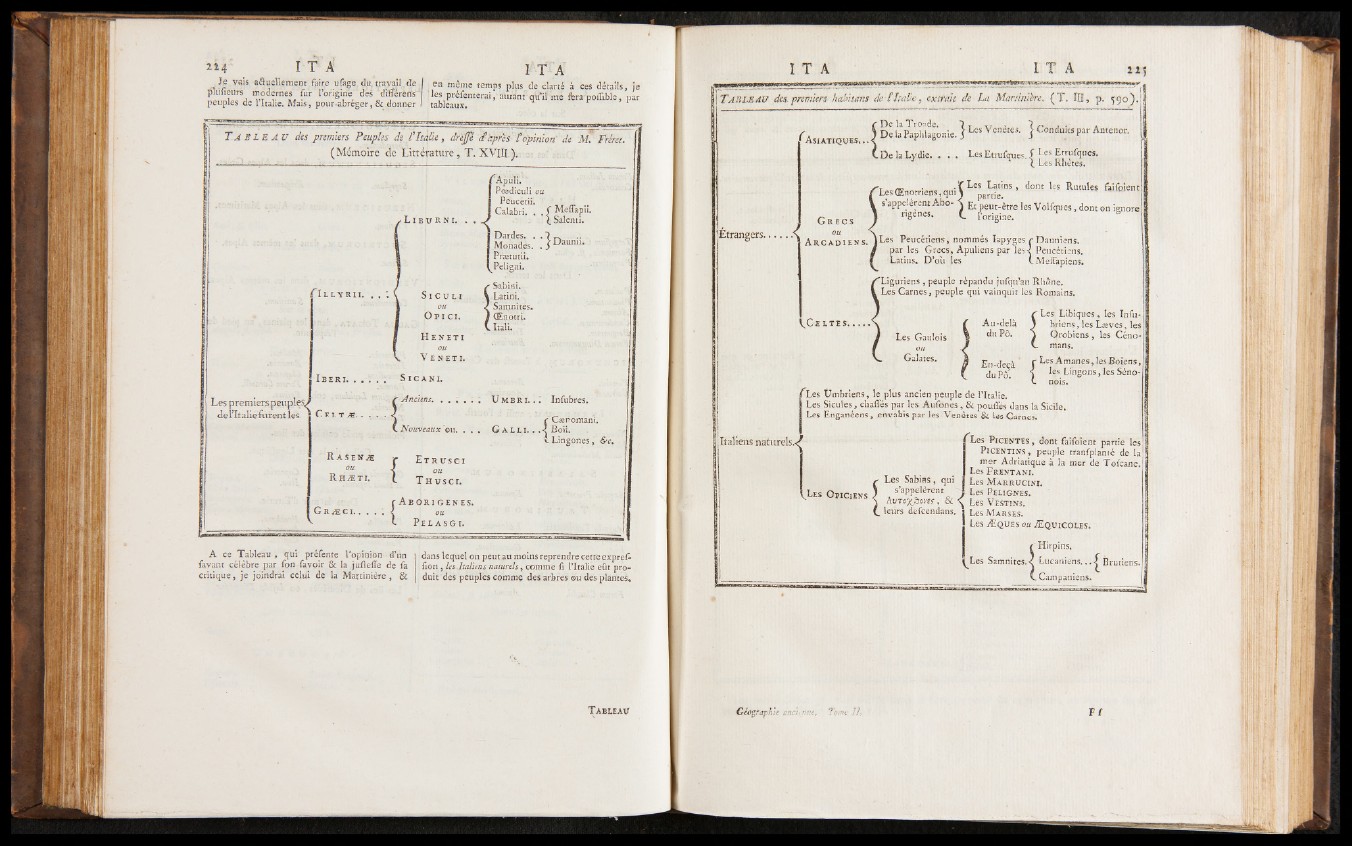 224 ITA ITA
Je vais actuellement faire usage du travail de
plusieurs modernes sur l'origine des différens
peuples de l'Italie. Mais, pour abréger, & donner
en même temps plus de clarté à ces détails, je
les présenterai, autant qu'il me sera possible, par
tableaux.
TABLEAU des premiers Peuples de l'Italie, dressé d'après l'opinion de M. Fréret.
(Mémoire de Littérature, T. XVIII).
Les premiers peuples
de l'Italie furent les
ILLYRII. . . :
LIBURNI. . .
Apuli.
Pœdiculi ou
Peucetii.
Calabri. . .
Messapii.
Salenti.
Dardes. . .
Monades. .
Daunii.
Prætutii.
Peligni.
SICULI
ou
OPICI.
Sabini.
Latini.
Samnites.
Œnotri.
Itali.
HENETI
ou
VENETI.
IBERI. . . . . . SICANI.
CELTÆ. . . . .
Anciens. . . . . . . UMBRI. . : Insubres.
Nouveaux ou. . . . GALLI. . .
Cænomani.
Boïi.
Lingones, &c.
RASENÆ
ou
RHÆTI.
ETRUSCI
ou
THUSCI.
GRÆCI. . . . .
ABORIGENES.
ou
PELASGI.
A ce Tableau, qui présente l'opinion d'un
savant célèbre par son savoir & la justesse de sa
critique, je joindrai celui de la Martinière, &
dans lequel on peut au moins reprendre cette expres-
sion, les Italiens naturels, comme si l'Italie eût pro-
duit des peuples comme des arbres ou des plantes.
TABLEAU
ITA ITA 225
TABLEAU des premiers habitans de l'Italie, extrait de La Martinière. (T. III, p. 590).
Étrangers. . . . . .
ASIATIQUES. . .
De la Troade.
De la Paphlagonie.
Les Venètes.
Conduits par Antenor.
De la Lydie. . . . Les Etrusques.
Les Etrusques.
Les Rhètes.
GRECS
ou
ARCADIENS.
Les Œnotriens, qui
s'appelèrent Abo-
rigènes.
Les Latins, dont les Rutules faisoient
partie.
Et peut-être les Volsques, dont on ignore
l'origine.
Les Peucétiens, nommés Iapyges
par les Grecs, Apuliens par les
Latins. D'où les
Dauniens.
Peucétiens.
Messapiens.
CELTES. . . . .
Liguriens, peuple répandu jusqu'au Rhône.
Les Carnes, peuple qui vainquit les Romains.
Les Gaulois
ou
Galates.
Au-delà
du Pô.
Les Libiques, les Insu-
briens, les Læves, les
Orobiens, les Céno-
mans.
En-deçà
du Pô.
Les Amanes, les Boïens,
les Lingons, les Séno-
nois.
Italiens naturels.
Les Umbriens, le plus ancien peuple de l'Italie.
Les Sicules, chassés par les Ausones, & poussés dans la Sicile.
Les Enganéens, envahis par les Venètes & les Carnes.
LES OPICIENS
Les Sabins, qui
s'appelèrent
Αυτοχθονες, &
leurs descendans.
Les PICENTES, dont faisoient partie les
PICENTINS, peuple transplanté de la
mer Adriatique à la mer de Toscane.
Les FRENTANI.
Les MARRUCINI.
Les PELIGNES.
Les VESTINS.
Les MARSES.
Les ÆQUES ou ÆQUICOLES.
Les Samnites.
Hirpins.
Lucaniens. . . Brutiens.
Campaniens.
Géographie ancienne. Tome II.
F f